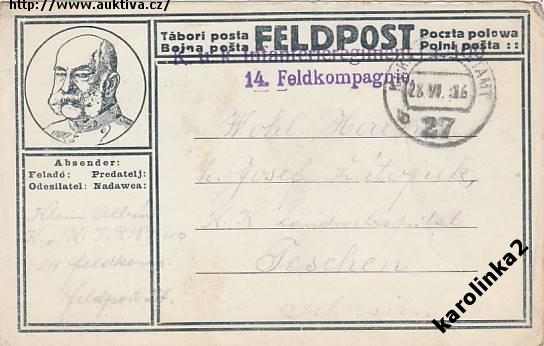 http://www.auktiva.cz/
Tábori posta
Bojna pošta
FELDPOST
Poczta polowa
Polni pošta ::
K. u. k. Infanterieregiment Nr. 100
14. Feldkompagnie.
28 VII. 16
b 27
Absender:
Feladó: Predatelj:
Odesilatel: Nadawca:
Wohl
h. Josef Zátopek,
K. K. Landwehrspital
Teschen
Schlesien
Klein
K. u. K. I. R. No 100
14 Feldkomp.
Feldpost
karolinka2